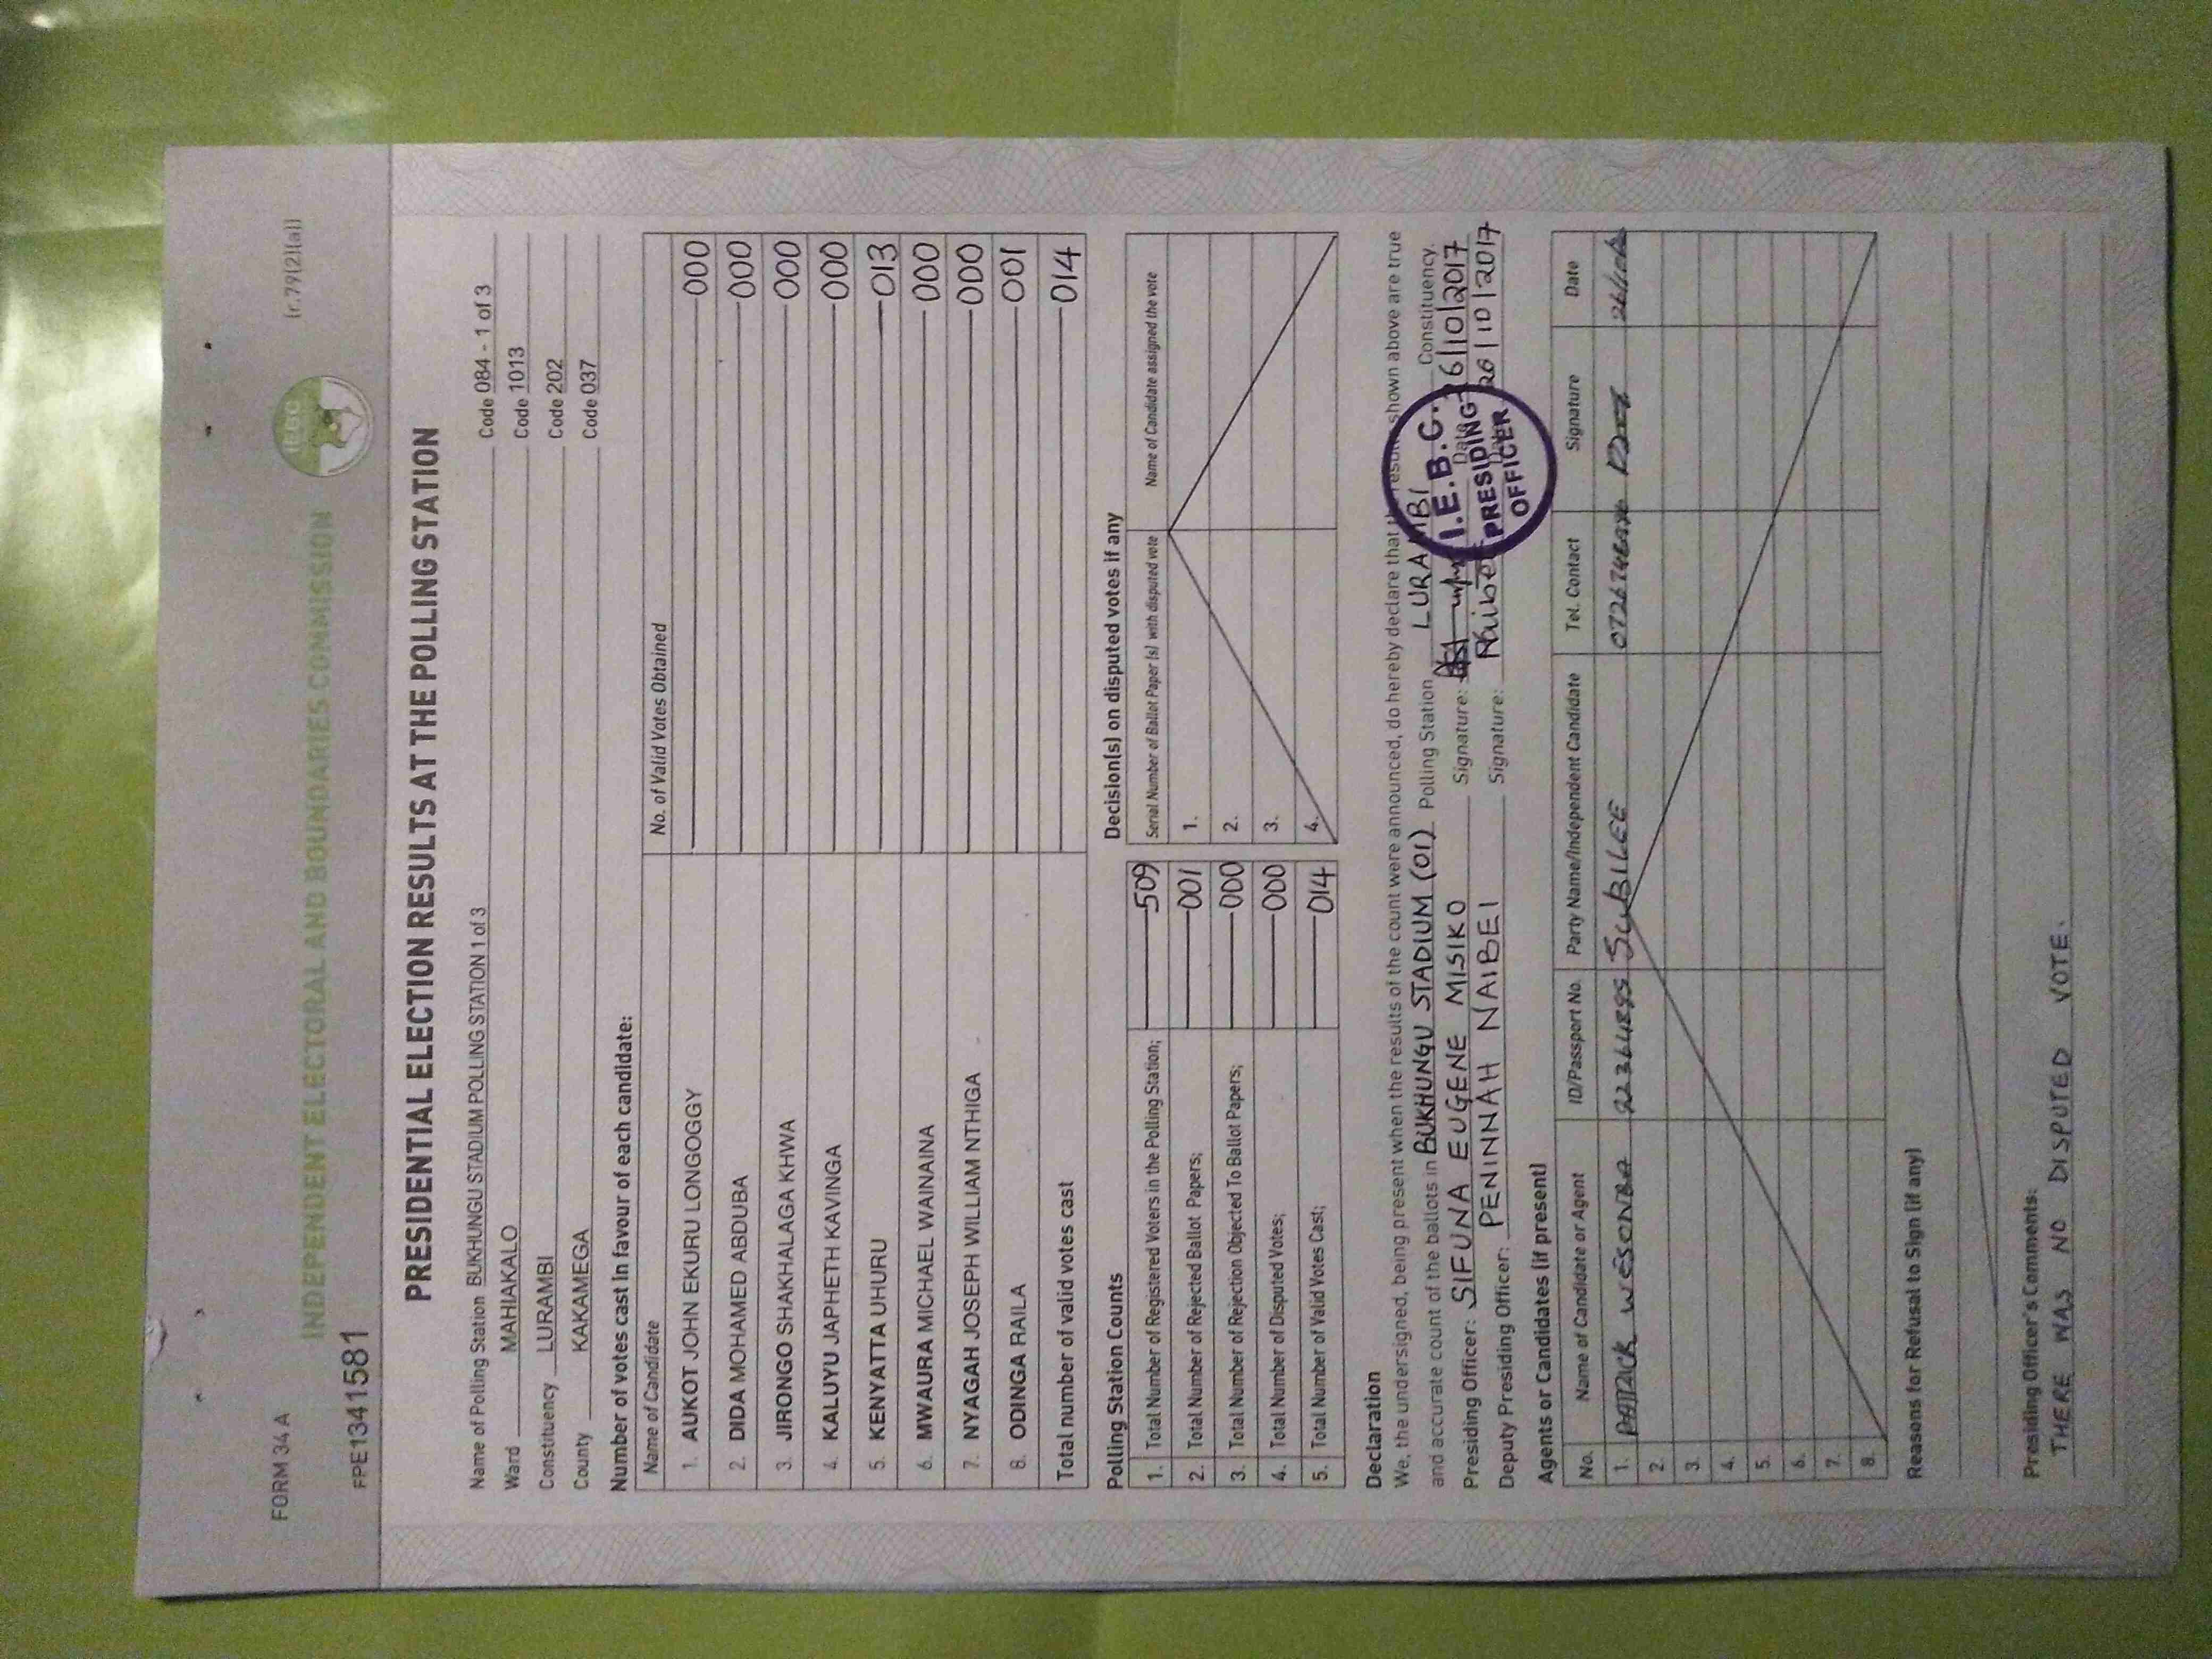 FORM 34 A
(r.79(2)(a))
IEBC
INDEPENDENT ELECTORAL AND BOUNDARIES COMMISSION
FPE1341581
PRESIDENTIAL ELECTION RESULTS AT THE POLLING STATION
Name of Polling Station BUKHUNGU STADIUM POLLING STATION 1 of 3 Code 084 - 1 of 3
Ward MAHIAKALO Code 1013
Constituency LURAMBI Code 202
County KAKAMEGA Code 037
Number of votes cast in favour of each candidate:
Name of Candidate No. of Valid Votes Obtained
1. AUKOT JOHN EKURU LONGOGGY 000
2. DIDA MOHAMED ABDUBA 000
3. JIRONGO SHAKHALAGA KHWA 000
4. KALUYU JAPHETH KAVINGA 000
5. KENYATTA UHURU 013
6. MWAURA MICHAEL WAINAINA 000
7. NYAGAH JOSEPH WILLIAM NTHIGA 000
8. ODINGA RAILA 001
Total number of valid votes cast 014
Polling Station Counts
1. Total Number of Registered Voters in the Polling Station; 509
2. Total Number of Rejected Ballot Papers; 001
3. Total Number of Rejection Objected To Ballot Papers; 000
4. Total Number of Disputed Votes; 000
5. Total Number of Valid Votes Cast; 014
Decision(s) on disputed votes if any
Serial Number of Ballot Paper (s) with disputed vote Name of Candidate assigned the vote
1.
2.
3.
4.
Declaration
We, the undersigned, being present when the results of the count were announced, do hereby declare that the results shown above are true
and accurate count of the ballots in BUKHUNGU STADIUM (01) Polling Station LURAMBI Constituency.
Presiding Officer: SIFUNA EUGENE MISIKO Signature: Date 26/10/2017
Deputy Presiding Officer: PENINNAH NAIBEI Signature: Naibei Date 26/10/2017
I.E.B.C.
PRESIDING
OFFICER
Agents or Candidates (if present)
No. Name of Candidate or Agent ID/Passport No. Party Name/Independent Candidate Tel. Contact Signature Date
1. PATRICK WESONGA 22364895 JUBILEE
2.
3.
4.
5.
6.
7.
8.
Reasons for Refusal to Sign (if any)
Presiding Officer's Comments:
THERE WAS NO DISPUTED VOTE.